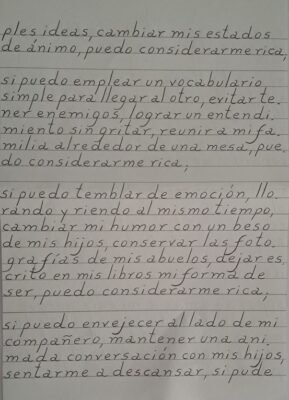 ples ideas, cambiar mis estados
de ánimo, puedo considerarme rica,
si puedo emplear un vocabulario
simple para llegar al otro, evitar te-
ner enemigos, lograr un entendi-
miento sin gritar, reunir a mi fa-
milia alrededor de una mesa, pue-
do considerarme rica;
si puedo temblar de emoción, llo-
rando y riendo al mismo tiempo,
cambiar mi humor con un beso
de mis hijos, conservar las foto-
grafías de mis abuelos, dejar es-
crito en mis libros mi forma de
ser, puedo considerarme rica;
si puedo envejecer al lado de mi
compañero, mantener una ani-
mada conversación con mis hijos,
sentarme a descansar, si pude